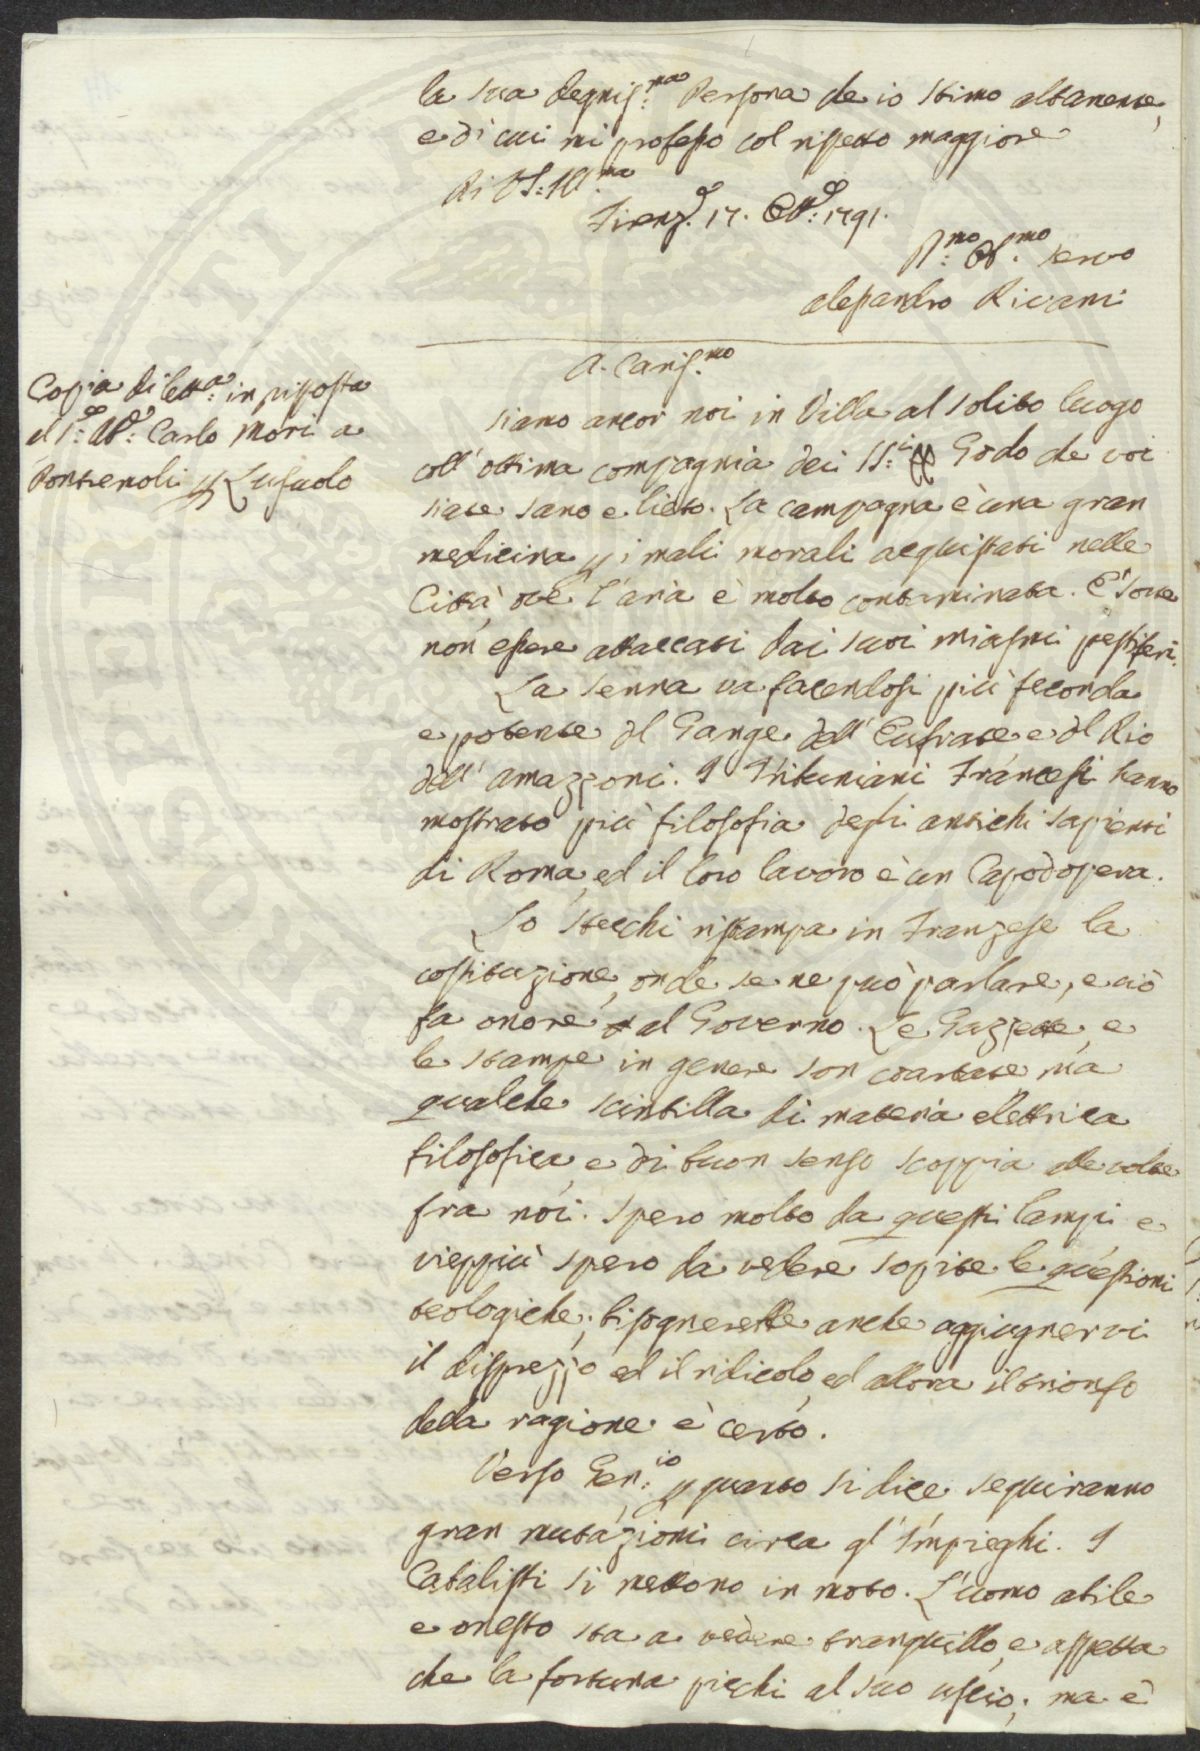 la sua degniss:ma Persona che io stimo altamente,
e di cui mi professo col rispetto maggiore
di VS: Ill:ma
Firenze 17. Ott:e 1791.
D:mo Ob:mo servo
Alessandro Rivani
A. Cariss:mo
Copia di lett:a in risposta
al S:e Ab:e Carlo Mori a
Pontenoli p Lusuolo
Siamo ancor noi in Villa al solito luogo
coll' ottima compagnia dei SS:i Godo che voi
siate sano e lieto. La campagna è una gran
medicina p i mali morali acquistati nelle
Città, ove l'aria è molto contaminata. E' sorte
non essere attaccati dai suoi miasmi pestiferi.
La Senna va facendosi più feconda
e potente del Gange dell' Eufrate e del Rio
dell' Amazzoni. I Tribuniani Francesi hanno
mostrato più filosofia degli antichi sapienti
di Roma, ed il loro lavoro è un Capodopera.
Lo Stecchi ristampa in Franzese la
costituzione, onde se ne può parlare, e ciò
fa onore al Governo. Le Gazzette, e
le stampe in genere son coartate ma
qualche scintilla di materia elettrica
filosofica, e di buon senso scoppia alle volte
fra noi. Spero molto da questi lampi e
vieppiù spero da vedere sopite le questioni
teologiche; bisognerebbe anche aggiugnervi
il disprezzo ed il ridicolo, ed allora il trionfo
della ragione è certo.
Verso Gen:io p quanto si dice seguiranno
gran mutazioni circa gl' Impieghi. I
Cabalisti si mettono in moto. L'uomo abile
e onesto sta a vedere tranquillo, e aspetta
che la fortuna picchi al suo uscio; ma è